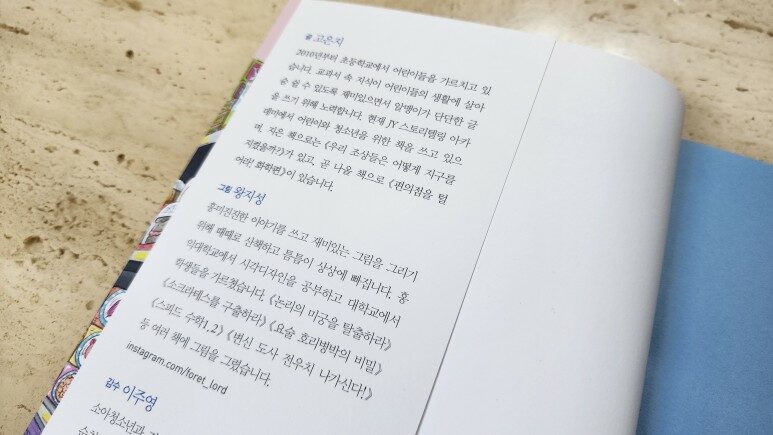 글 고은지
2010년부터 초등학교에서 어린이들을 가르치고 있
습니다. 교과서 속 지식이 어린이들의 생활에 살아
숨 쉴 수 있도록 재미있으면서 알맹이가 단단한 글
을 쓰기 위해 노력합니다. 현재 JY 스토리텔링 아카
데미에서 어린이와 청소년을 위한 책을 쓰고 있으
며, 지은 책으로는 《우리 조상들은 어떻게 지구를
지켰을까?》가 있고, 곧 나올 책으로 《편의점을 털
어라! 화학편》이 있습니다.
그림 왕지성
흥미진진한 이야기를 쓰고 재미있는 그림을 그리기
위해 때때로 산책하고 틈틈이 상상에 빠집니다. 홍
익대학교에서 시각디자인을 공부하고 대학교에서
학생들을 가르쳤습니다. 《논리의 미궁을 탈출하라》
《소크라테스를 구출하라》 《요술 호리병박의 비밀》
《스피드 수학 1, 2》 《변신 도사 전우치 나가신다!》
등 여러 책에 그림을 그렸습니다.
instagram.com/foret_lord
감수 이주영
소아청소년과